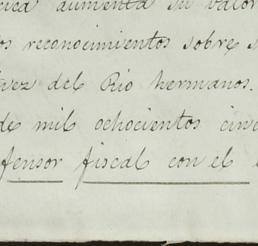 aumenta su valor
reconocimientos sobre
del Rio hermanos.
de mil ochocientos cinc
fensor fiscal con el